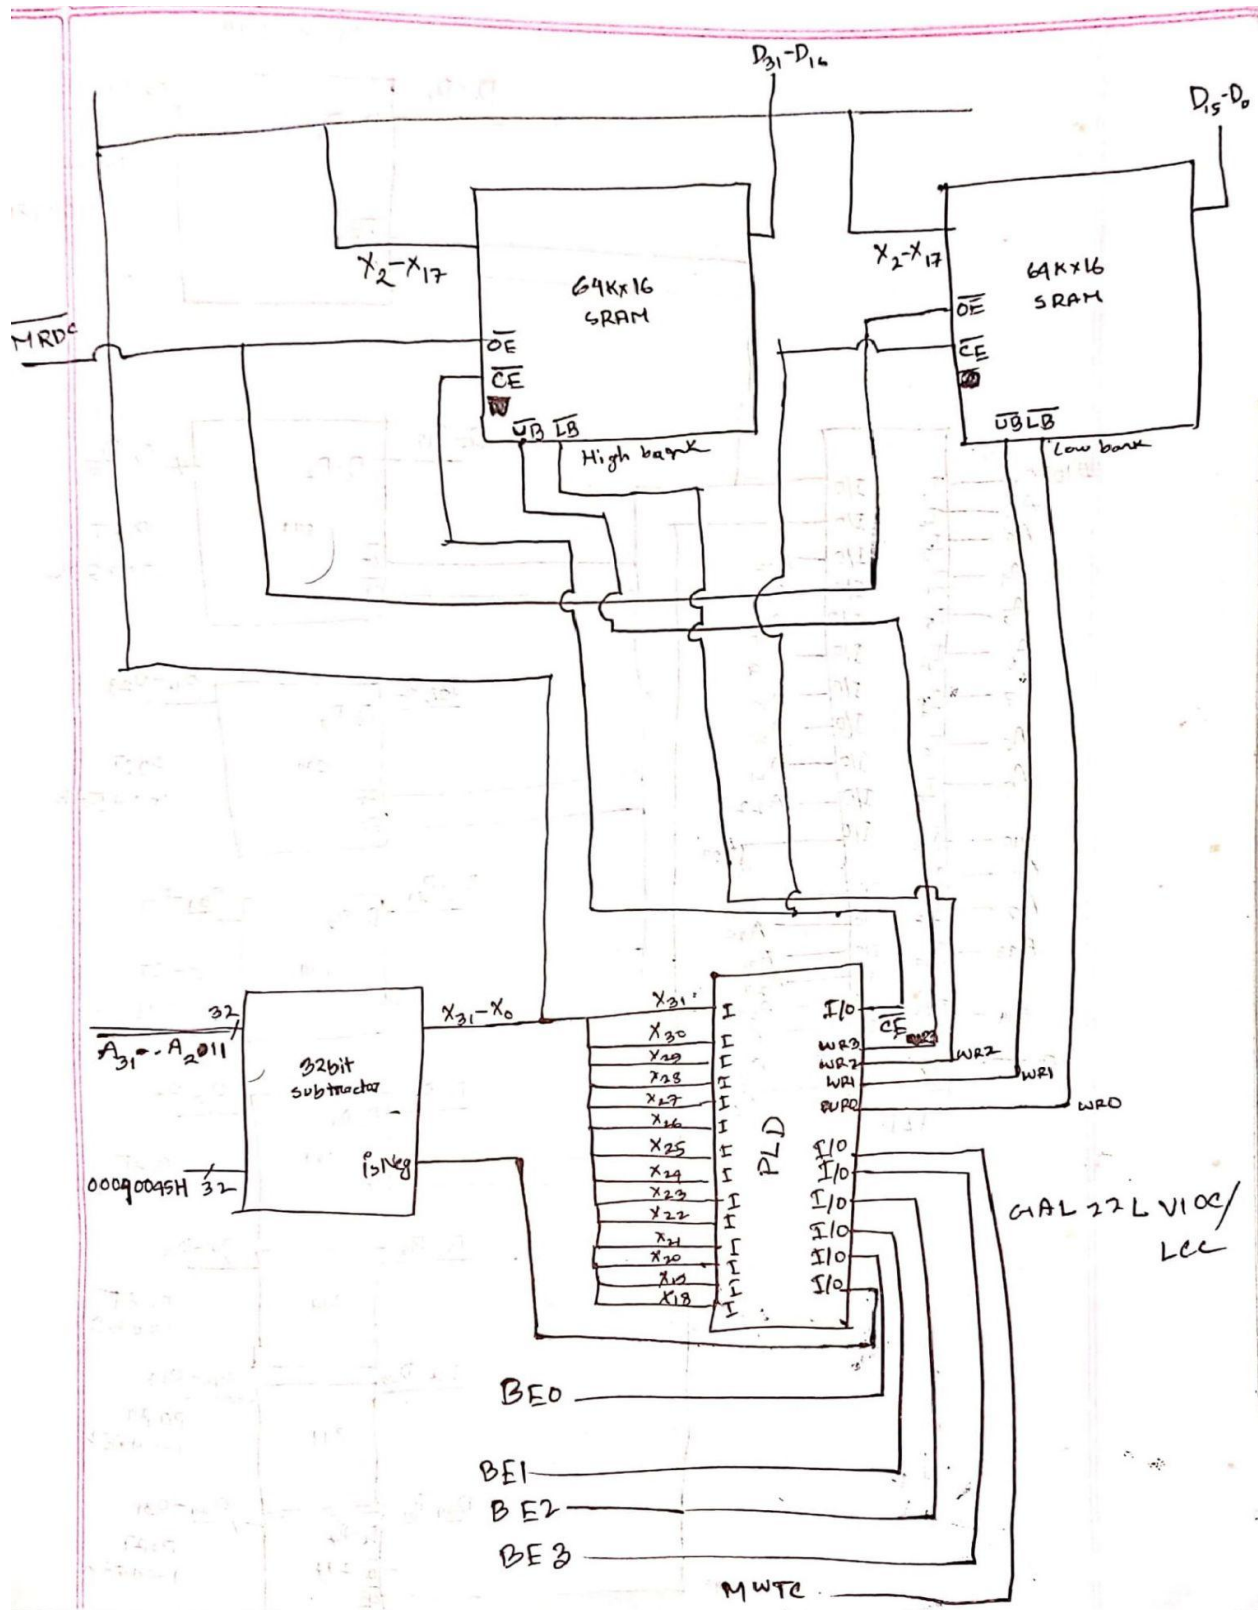 D31-D16
D15-D0
X2-X17
64Kx16
SRAM
OE
CE
UB LB
High bank
X2-X17
64Kx16
SRAM
OE
CE
UB LB
Low bank
MRDC
32
A31-- A2 011
32bit
subtractor
isNeg
00090045H
32
X31-X0
X31
X30
X29
X28
X27
X26
X25
X24
X23
X22
X21
X20
X19
X18
I
I
I
I
I
I
I
I
I
I
I
I
I
I
PLD
I/O
CE
WR3
WR2
WR1
WR0
WR2
WR1
WR0
I/O
I/O
I/O
I/O
I/O
I/O
GAL 22LV10C/
LCC
BE0
BE1
BE2
BE3
MWTC